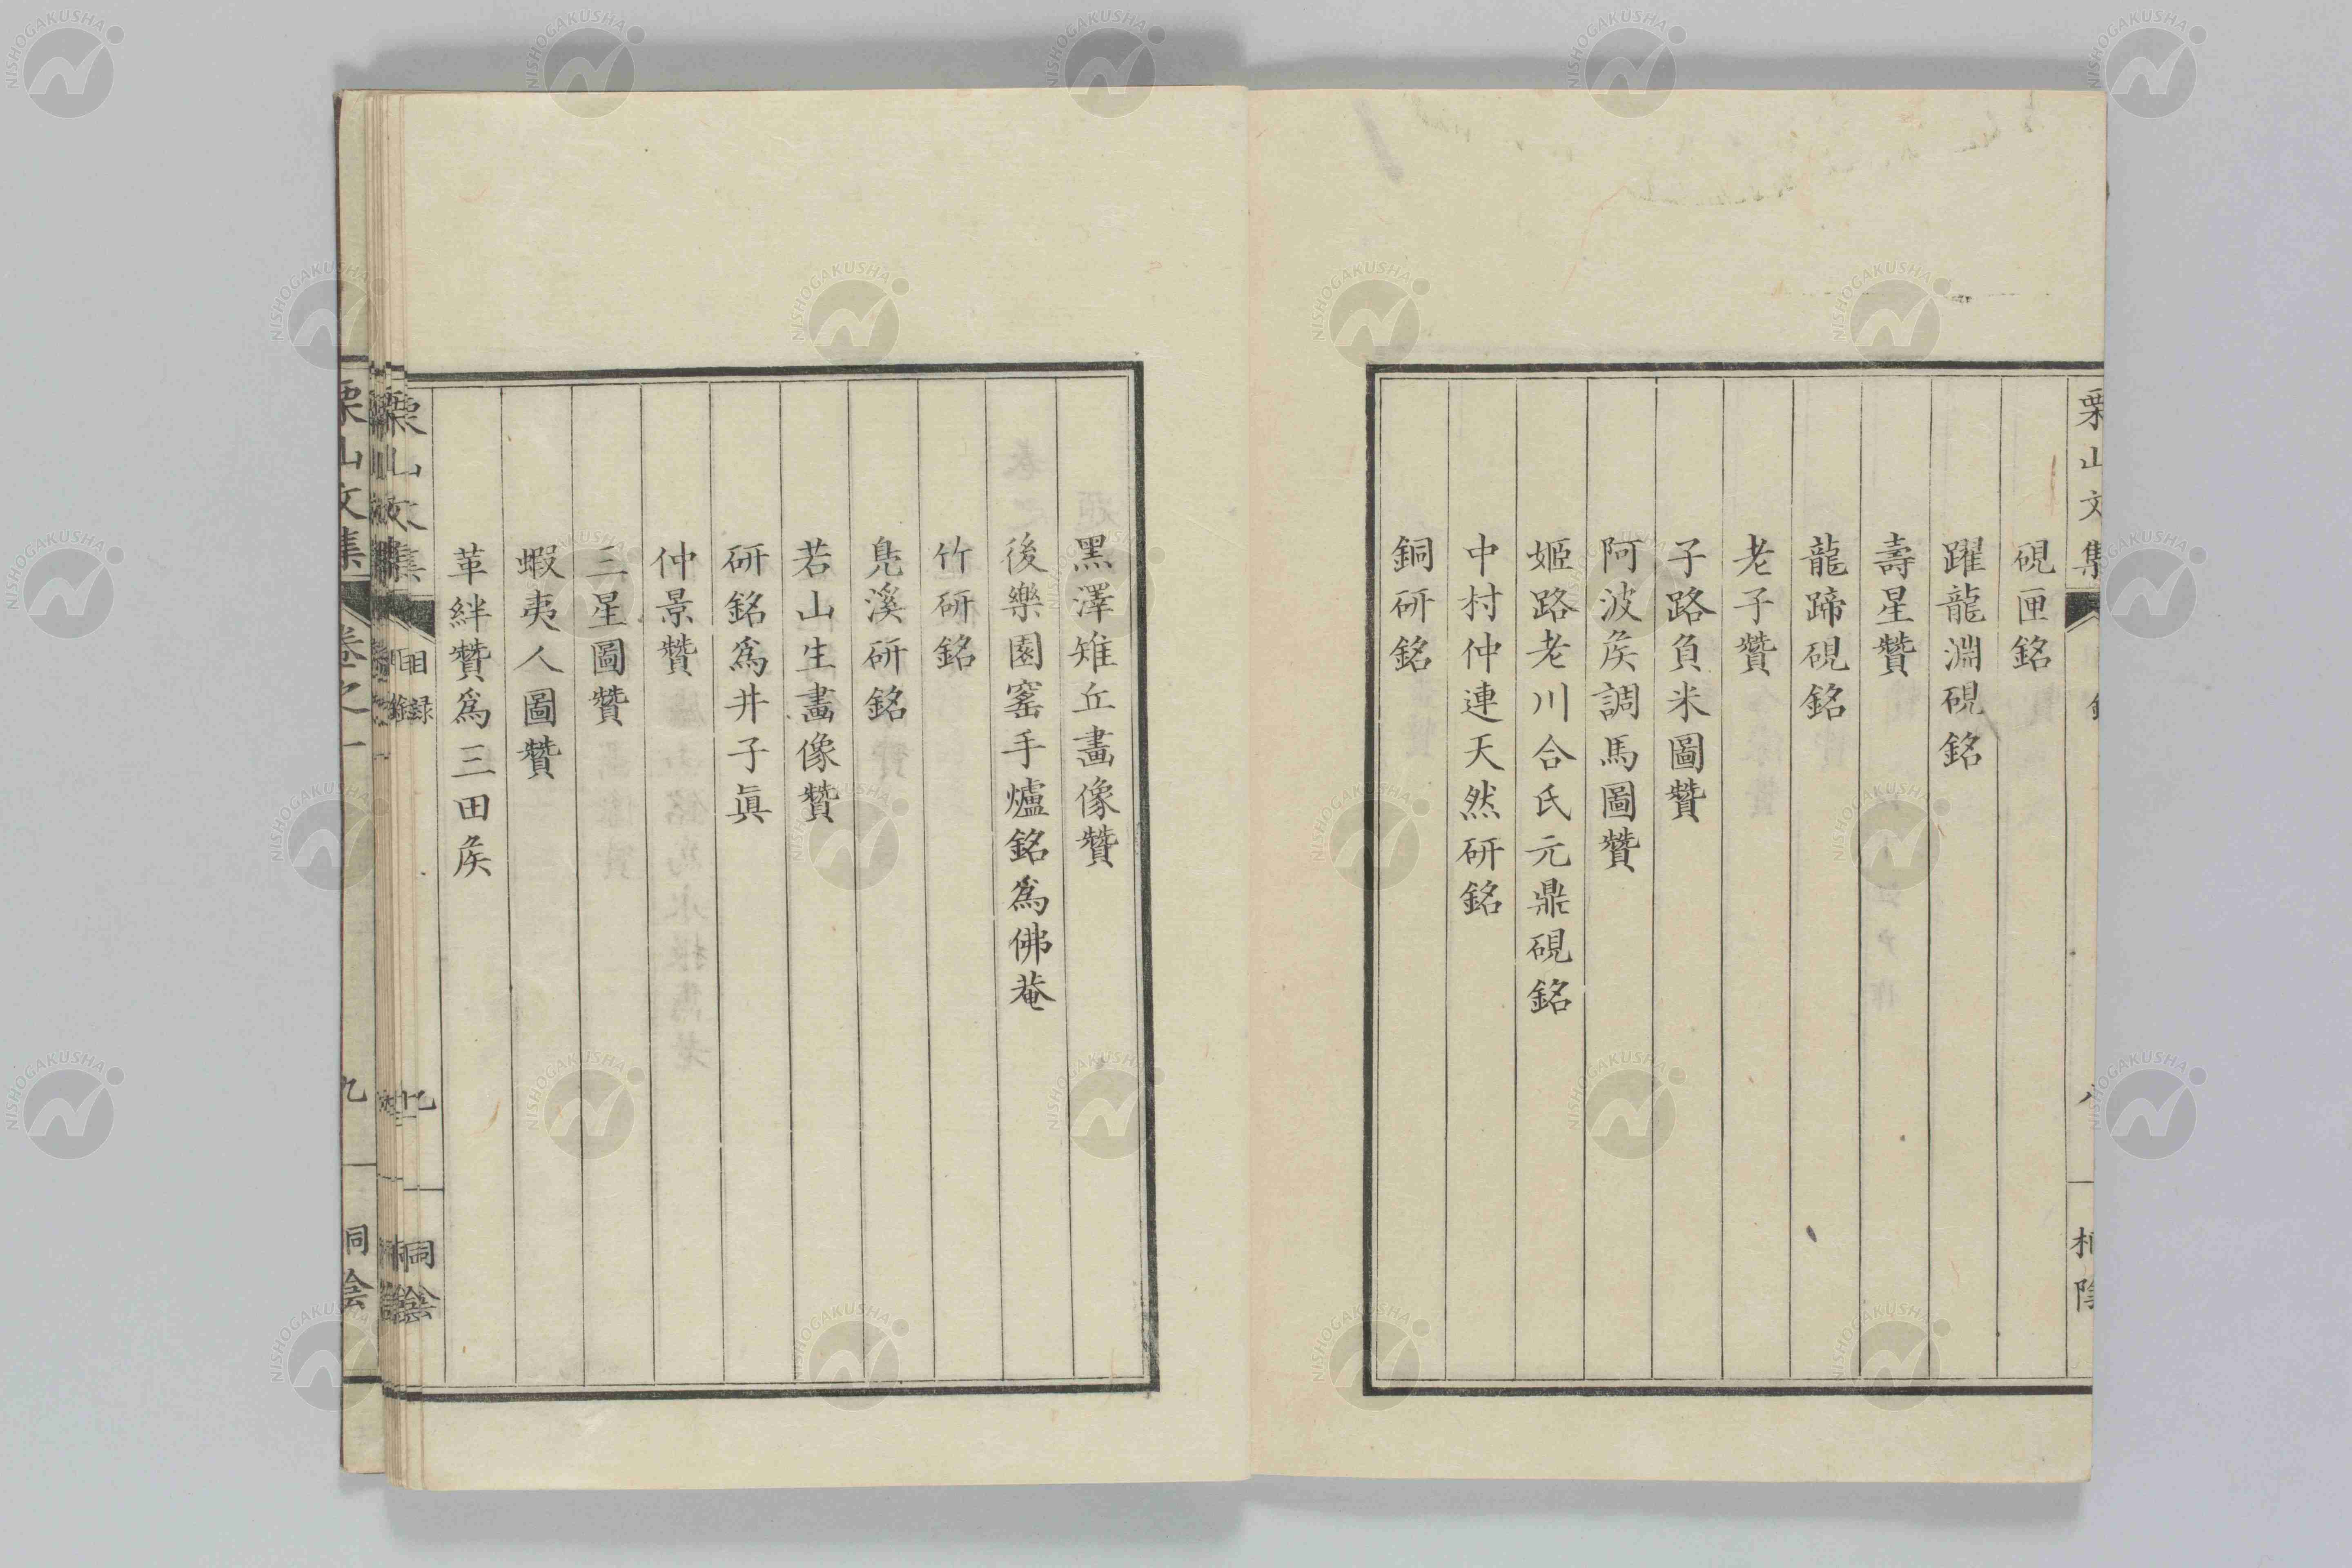 栗山文集
硯匣銘
躍龍淵硯銘
壽星贊
龍蹄硯銘
老子贊
子路負米圖贊
阿波矦調馬圖贊
姬路老川合氏元鼎硯銘
中村仲連天然研銘
銅研銘
黑澤雉丘畫像贊
後樂園窰手爐銘爲佛菴
竹研銘
鳧溪研銘
若山生畫像贊
研銘爲井子眞
仲景贊
三星圖贊
蝦夷人圖贊
革絆贊爲三田矦
栗山文集
目録
九
桐陰
栗山文集
卷之一
九
桐陰
NISHOGAKUSHA